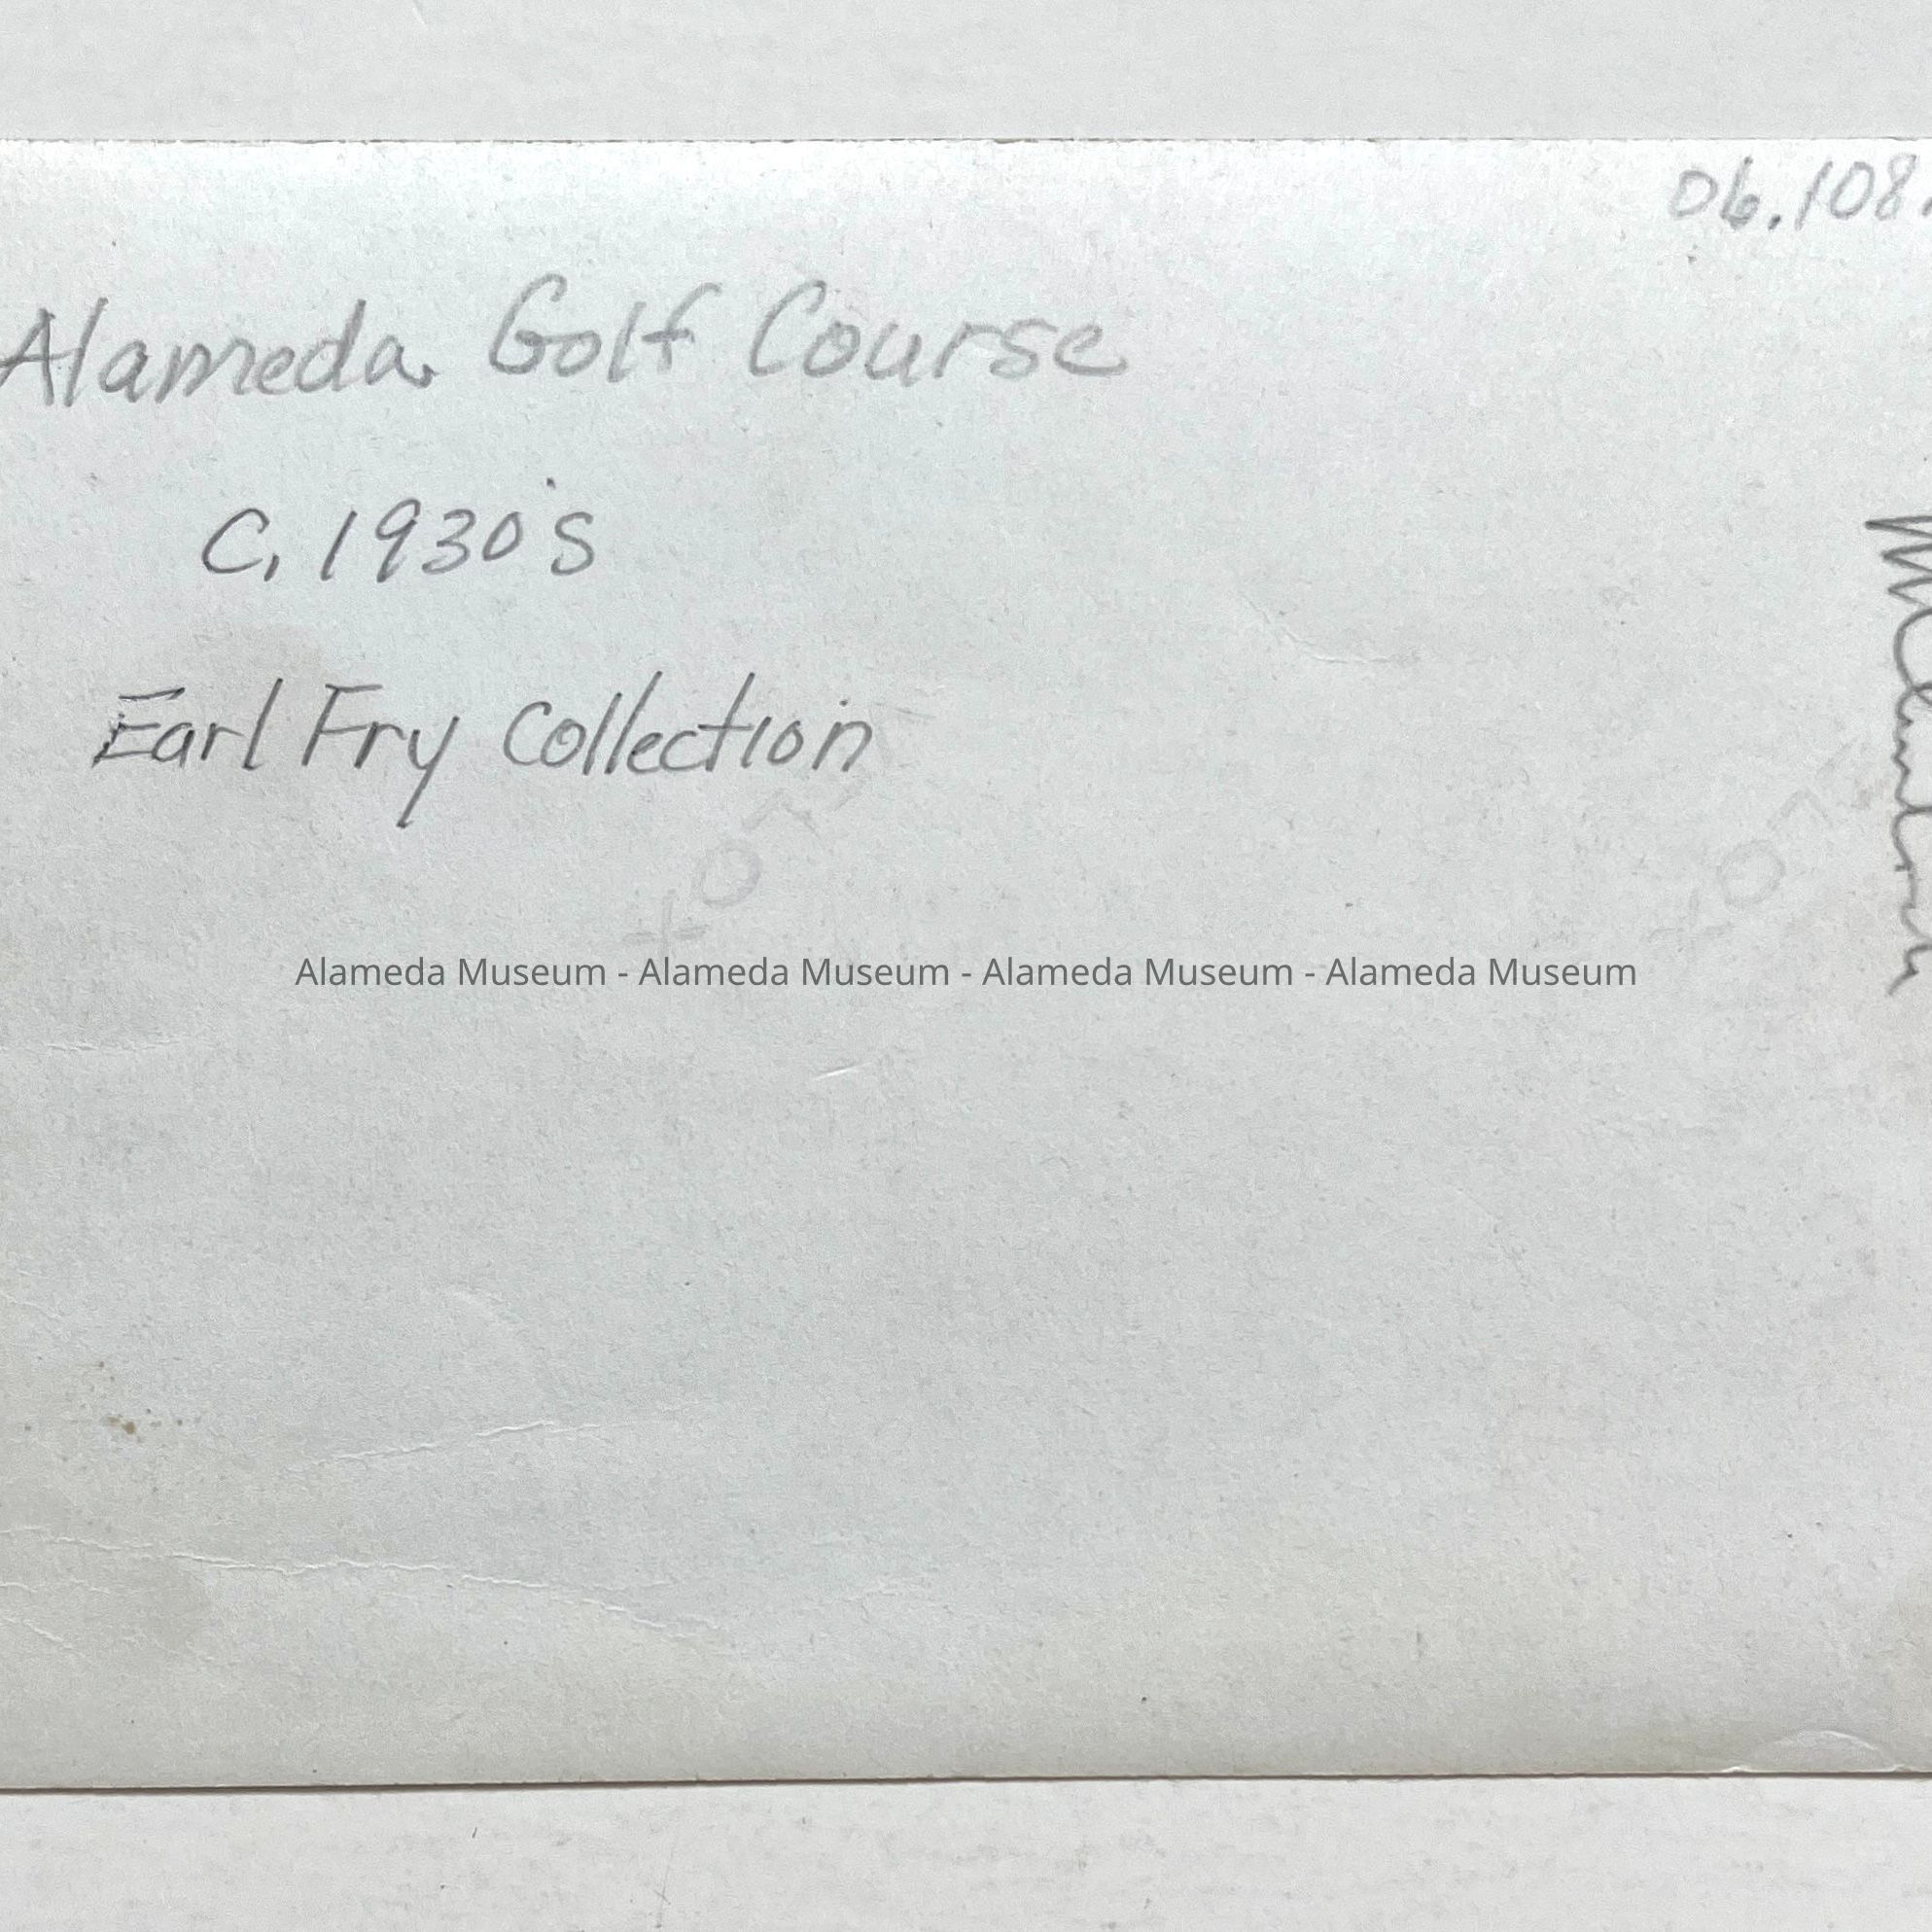 06.108.
Alameda Golf Course
C. 1930's
Earl Fry Collection
Alameda Museum - Alameda Museum - Alameda Museum - Alameda Museum